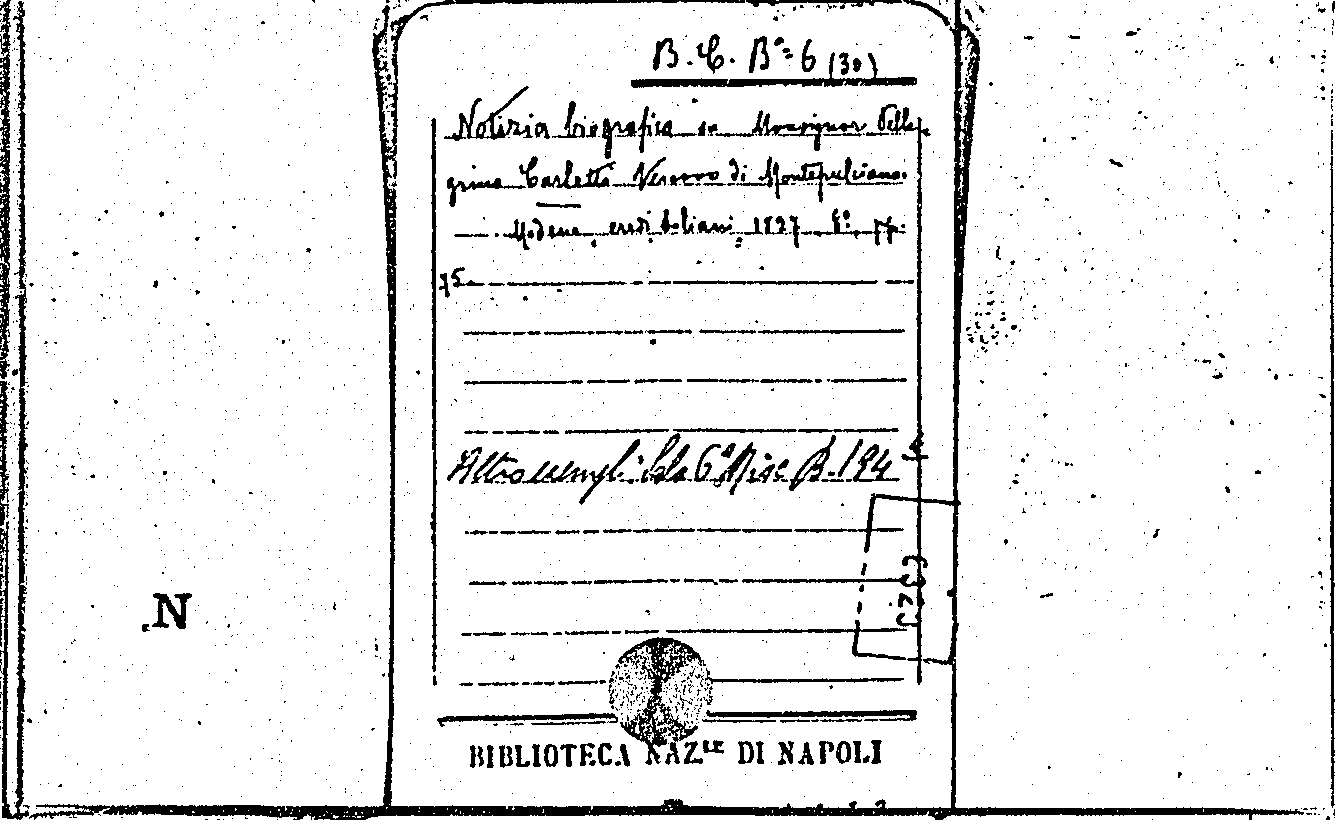 B. C. Bª 6 (30)
Notizia biografica su Monsignor Pelle-
grino Carletti Vescovo di Montepulciano.
Modena, eredi Soliani, 1827. 8º. pp.
75.
Altro esempl. Sala 6ª Misc B. 194
N
BIBLIOTECA NAZLE DI NAPOLI